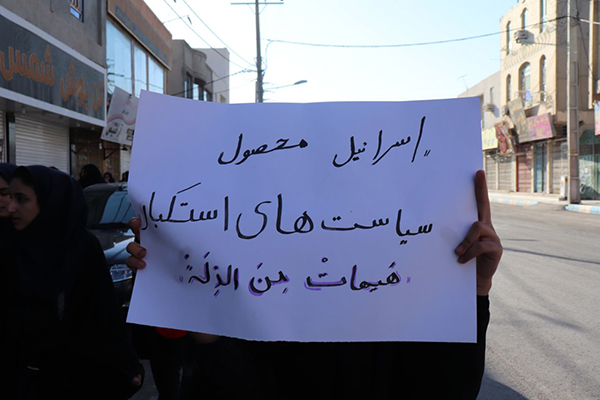 إسرائیل محصول
سیاست‌های استکبار
هَیهاتْ مِنَ الذِلَة